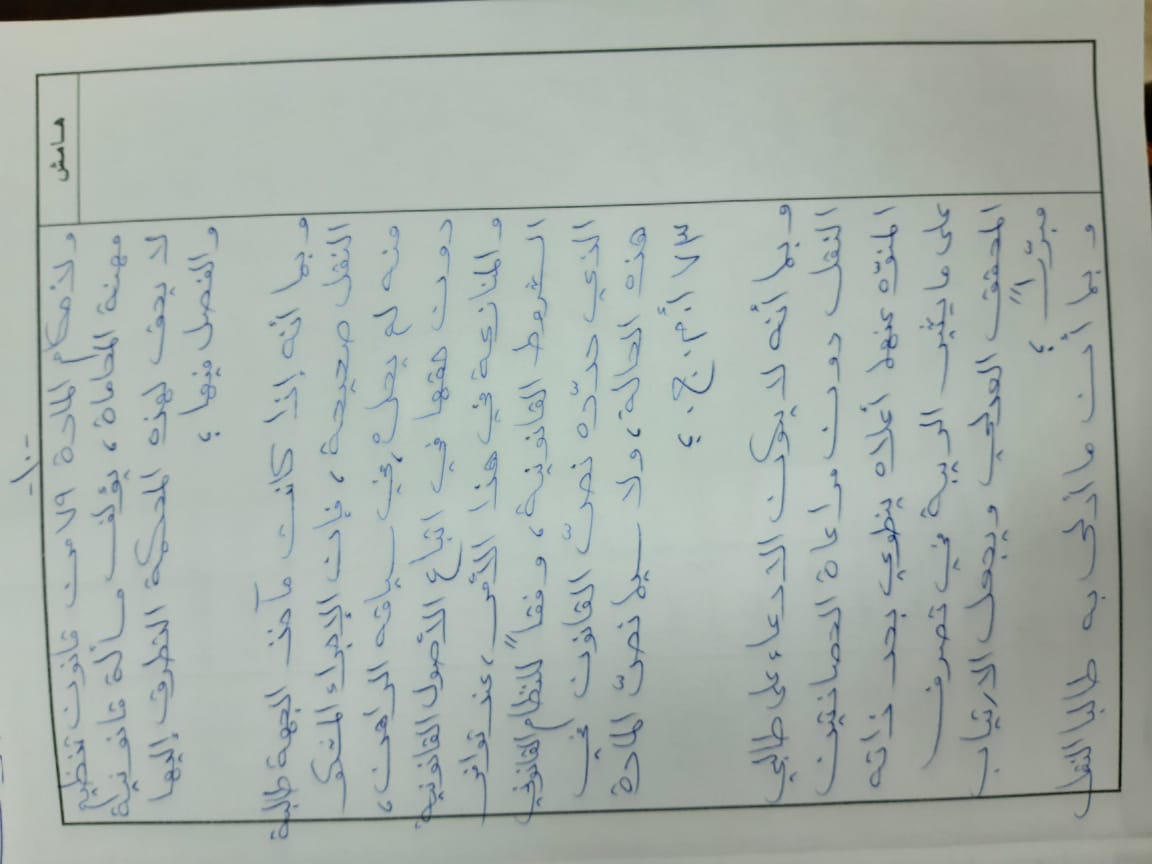 -١٠-
هامش
ولأحكام المادة ٧٩ من قانون تنظيم
مهنة المحاماة، يؤلف مسألة قانونية
لا يحق لهذه المحكمة التطرق إليها
والفصل فيها؛
وبما أنّه إذا كانت مآخذ الجهة طالبة
النقل صحيحة، فإن الإجراء المشكو
منه لم يحل، في سياقه الراهن،
دون حقها في اتباع الأصول القانونية
والمنازعة في هذا الأمر، عند توافر
الشروط القانونية، وفقاً للنظام القانوني
الذي حدّده نصّ القانون في
هذه الحالة، ولا سيما نصّ المادة
٧٣ أ.م.ج.؛
وبما أنّه لا يكون الادعاء على طالبي
النقل دون مراعاة الحصانتين
المنوّه عنهما أعلاه ينطوي بحد ذاته
على ما يثير الريبة في تصرف
المحقق العدلي ويجعل الارتياب
مبرّراً؛
وبما أن ما أدلى به طالبا النقل